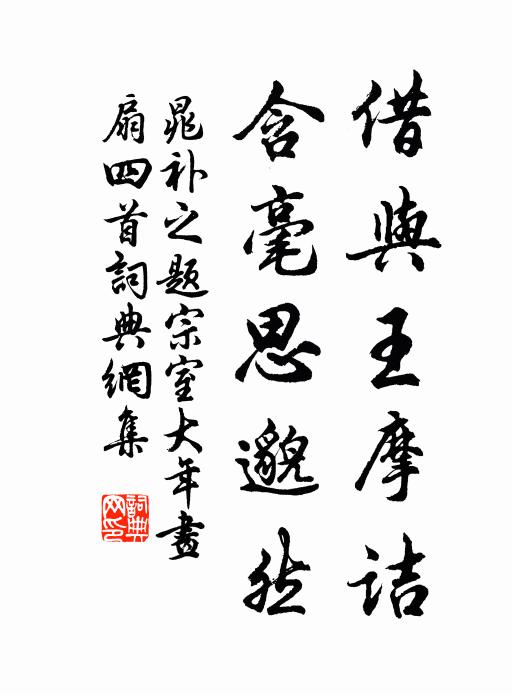 借與王摩詰
含毫思邈然
晁补之題宗室大年畫
扇四首詞典網集
詞典
网印